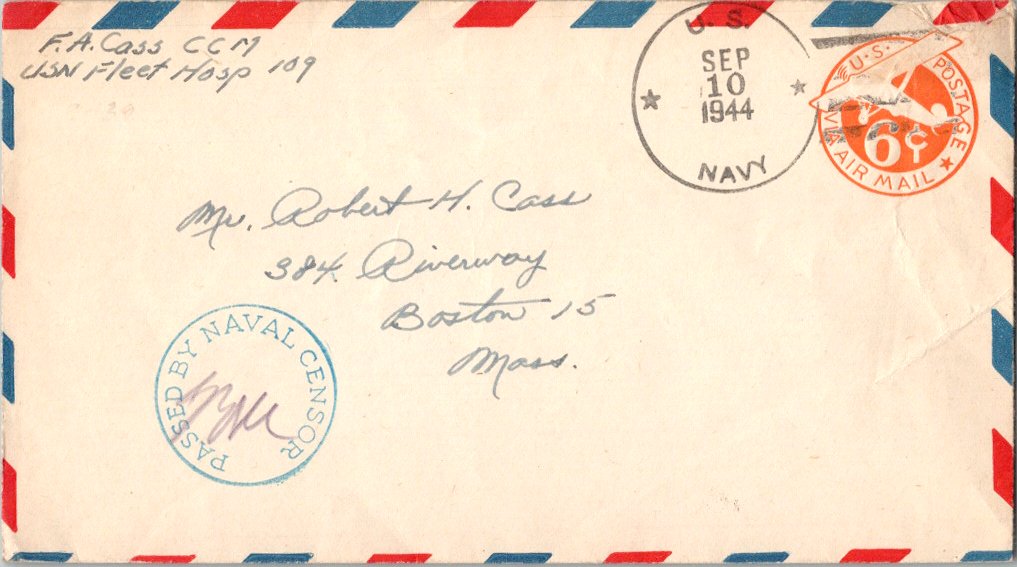 F.A. Cass CCM
USN Fleet Hosp 109
U. S.
SEP
10
1944
NAVY
U.S. POSTAGE
6¢
VIA AIR MAIL
Mr. Robert H. Cass
384 Riverway
Boston 15
Mass.
PASSED BY NAVAL CENSOR